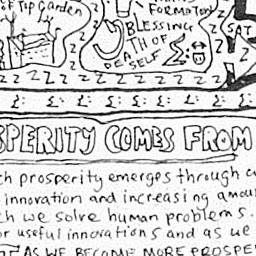 OF TOP GARDEN
FORMATION
BLESSING
TH OF
DEAD SELF
SPERITY COMES FROM
ch prosperity emerges through
innovation and increasing amou
ch we solve human problems.
or useful innovations and as we
AS WE BECOME MORE PROSPE